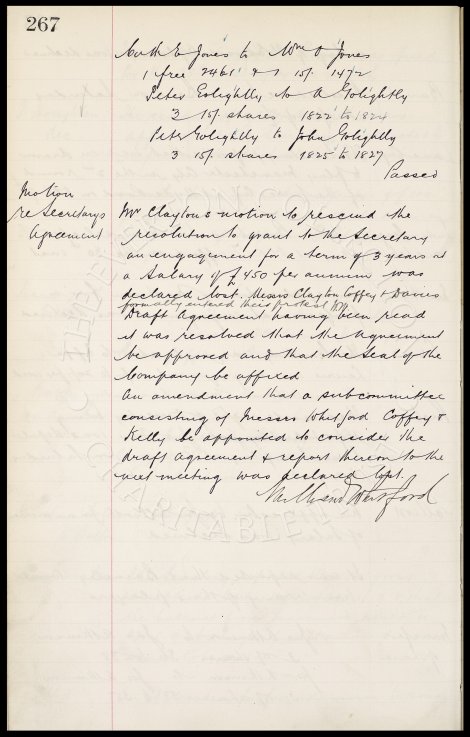 267
E Jones to Wm Jones
1 free 2461 & 1 15/. 1472
Peter Golightly to A Golightly
3 15/. shares 1822 to 1824
Peter Golightly to John Golightly
3 15/. shares 1825 to 1827
Passed
Motion
re Secretarys
Agreement
Mr Clayton's motion to rescind the
resolution to grant to the Secretary
an engagement for a term of 3 years at
a Salary of £450 per annum was
declared lost. Messrs Clayton Coffey & Davies
formally entered their protest
Draft Agreement having been read
it was resolved that the Agreement
be approved and that the Seal of the
Company be affixed
An amendment that a subcommittee
consisting of Messrs Whitford Coffey &
Kelly be appointed to consider the
draft agreement & report thereon to the
next meeting was declared lost.
Whitford